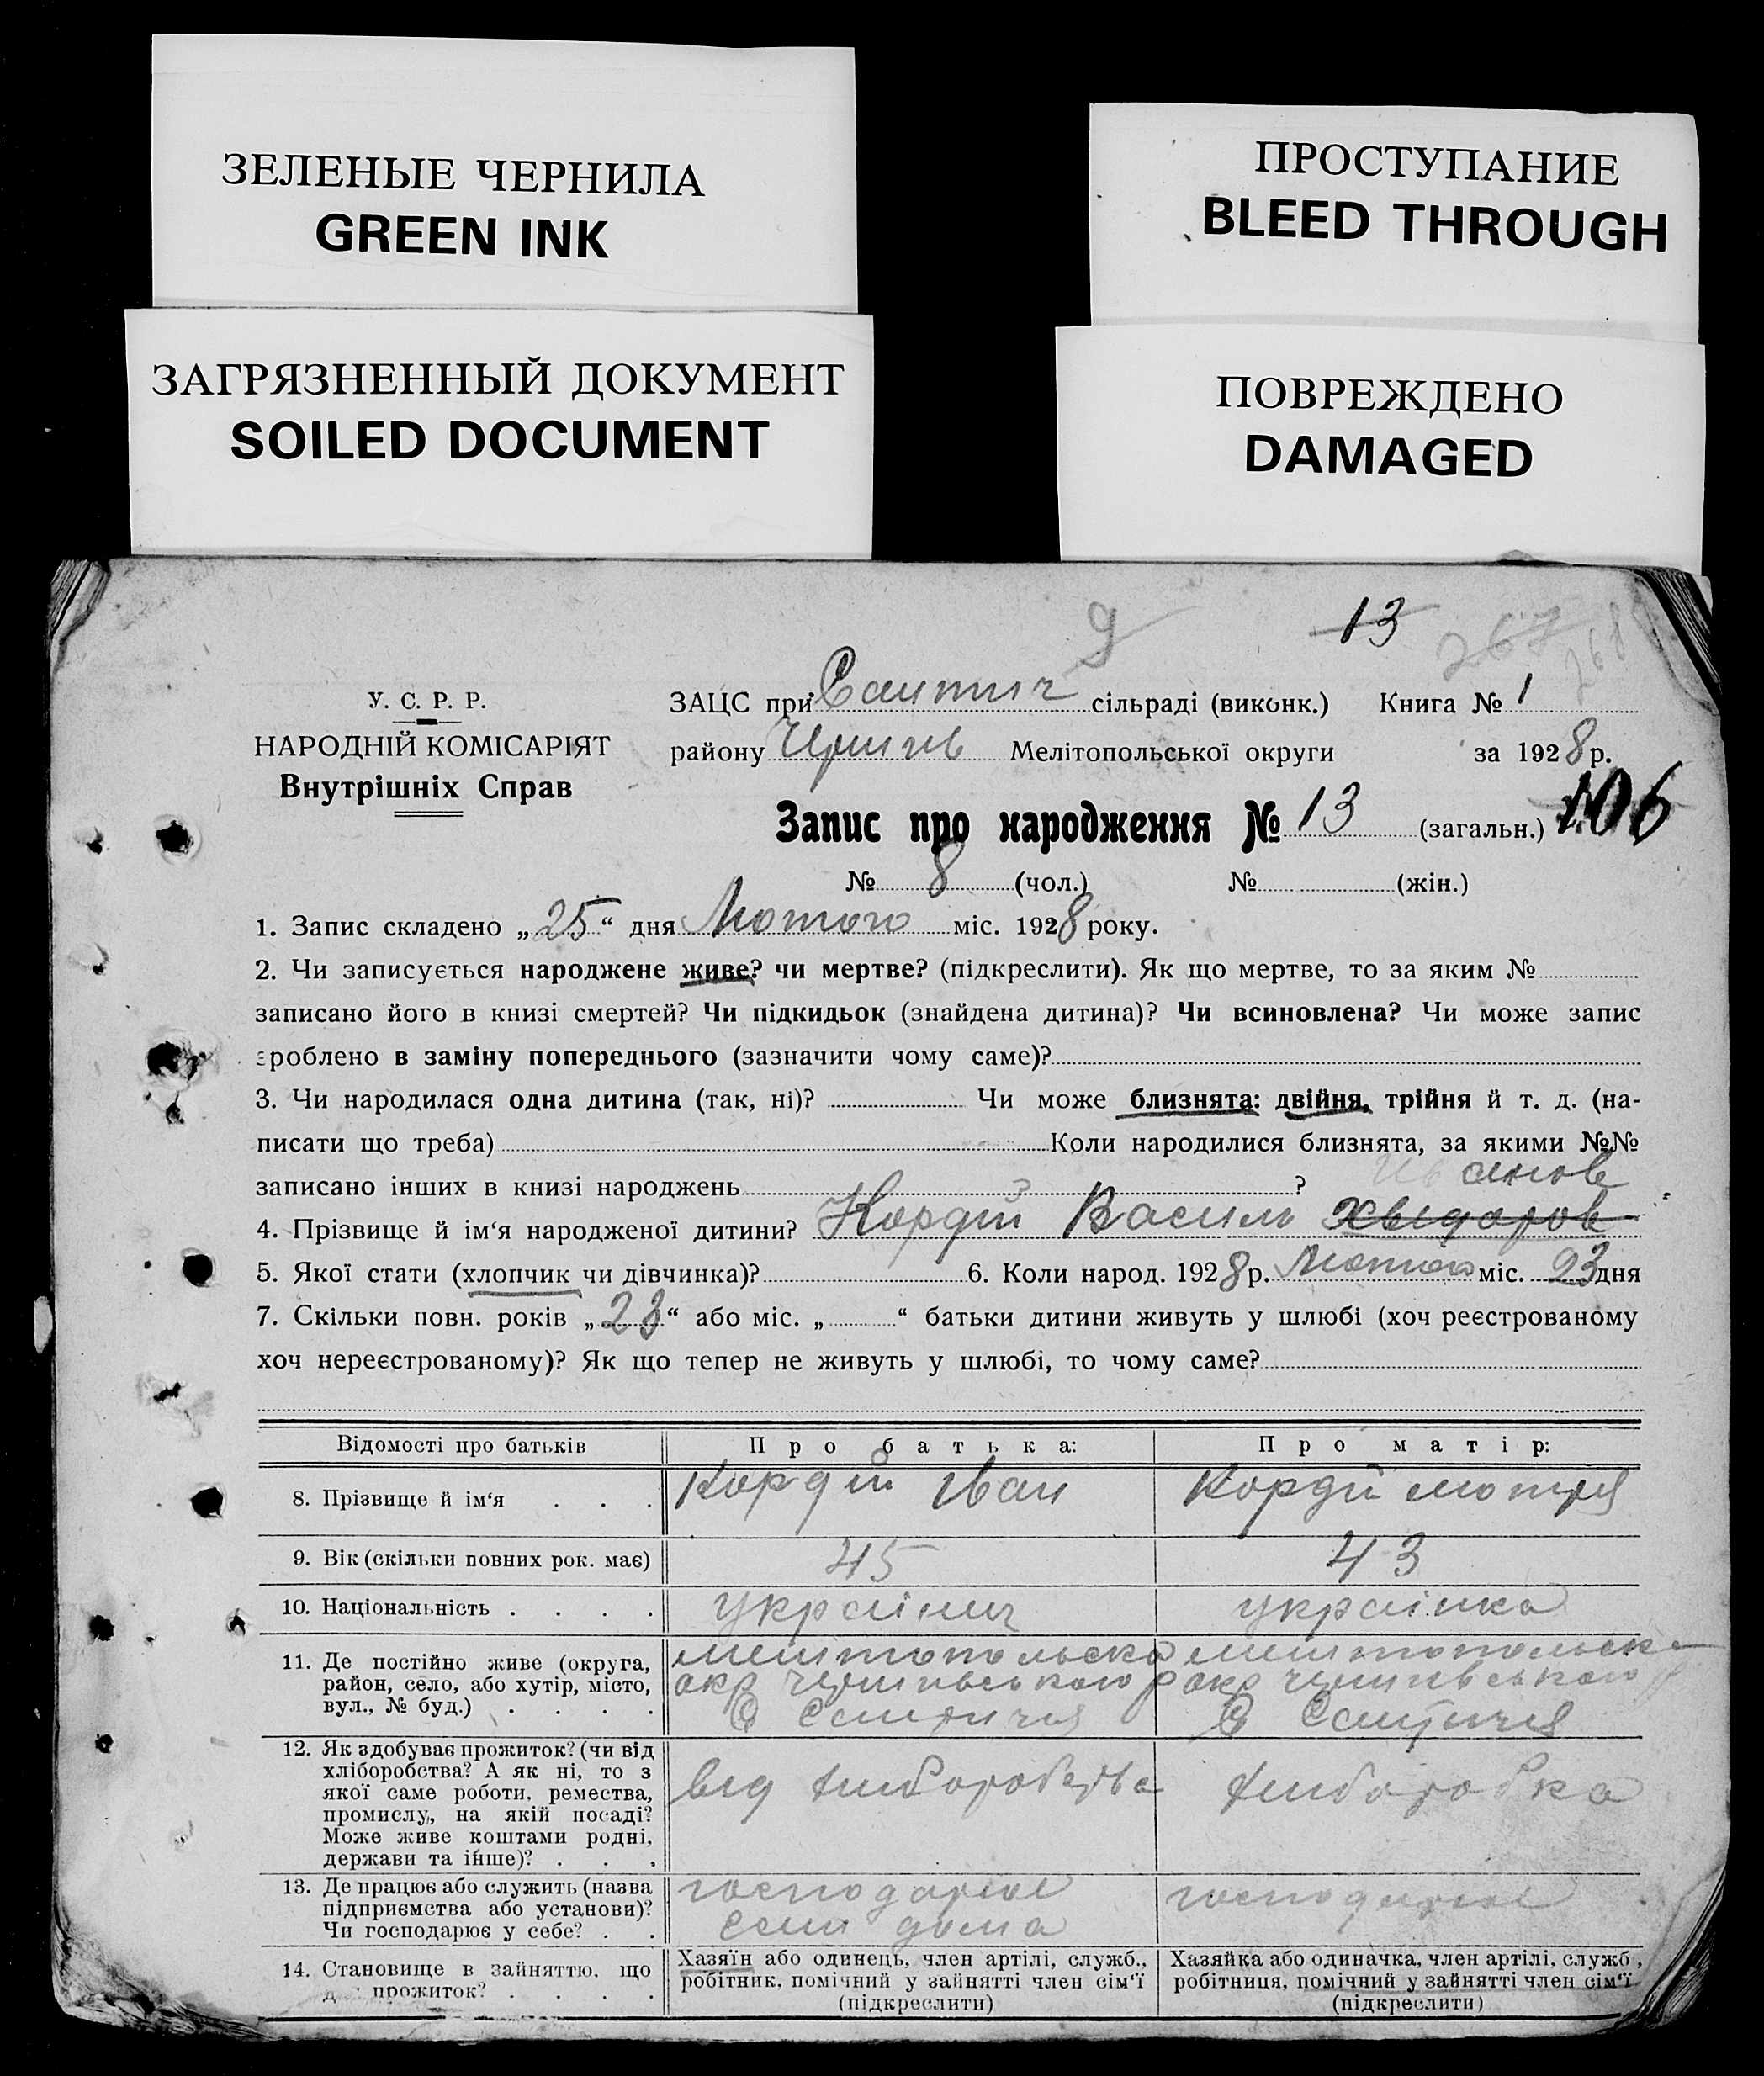 ЗЕЛЕНЫЕ ЧЕРНИЛА
GREEN INK
ПРОСТУПАНИЕ
BLEED THROUGH
ЗАГРЯЗНЕННЫЙ ДОКУМЕНТ
SOILED DOCUMENT
ПОВРЕЖДЕНО
DAMAGED
9 13 267 268
У. С. Р. Р.
НАРОДНІЙ КОМІСАРІЯТ
Внутрішніх Справ
ЗАЦС при сільраді (виконк.) Книга № 1
району Мелітопольської округи за 1928 р.
Запис про народження № 13 (загальн.) 106
№ 8 (чол.) № (жін.)
1. Запис складено „25“ дня Лютого міс. 1928 року.
2. Чи записується народжене живе? чи мертве? (підкреслити). Як що мертве, то за яким №
записано його в книзі смертей? Чи підкидьок (знайдена дитина)? Чи всиновлена? Чи може запис
зроблено в заміну попереднього (зазначити чому саме)?
3. Чи народилася одна дитина (так, ні)? Чи може близнята: двійня, трійня й т. д. (на-
писати що треба) Коли народилися близнята, за якими №№
записано інших в книзі народжень ? Иванов
4. Прізвище й ім‘я народженої дитини? Кордій Василь Хведоров
5. Якої стати (хлопчик чи дівчинка)? 6. Коли народ. 1928 р. Лютого міс. 23 дня
7. Скільки повн. років „23“ або міс. „ “ батьки дитини живуть у шлюбі (хоч реєстрованому
хоч нереєстрованому)? Як що тепер не живуть у шлюбі, то чому саме?
Відомості про батьків Про батька: Про матір:
8. Прізвище й ім‘я . . . Кордій Іван Кордій Мотря
9. Вік (скільки повних рок. має) 45 43
10. Національність . . . . українец українка
11. Де постійно живе (округа,
район, село, або хутір, місто,
вул., № буд.) . . . .
Мелітопольска
окр р
Мелітопольска
окр
12. Як здобуває прожиток? (чи від
хліборобства? А як ні, то з
якої саме роботи, ремества,
промислу, на якій посаді?
Може живе коштами родні,
держави та інше)? . . .
від хліборобства
хліборобка
13. Де працює або служить (назва
підприємства або установи)?
Чи господарює у себе? . .
господарює
сам дома
господарює
14. Становище в зайняттю, що
прожиток? . . . .
Хазяїн або одинець, член артілі, служб.,
робітник, помічний у зайнятті член сім‘ї
(підкреслити)
Хазяйка або одиначка, член артілі, служб.,
робітниця, помічний у зайнятті член сім‘ї
(підкреслити)